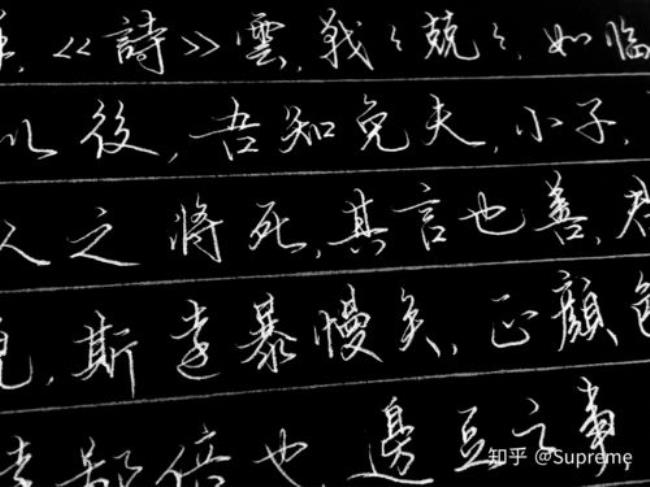 《詩》雲，戰々兢々，如臨
以後，吾知免夫，小子，
人之將死，其言也善，君
貌，斯遠暴慢矣，正顏色
遠鄙倍也，籩豆之事，
知乎 @Supreme